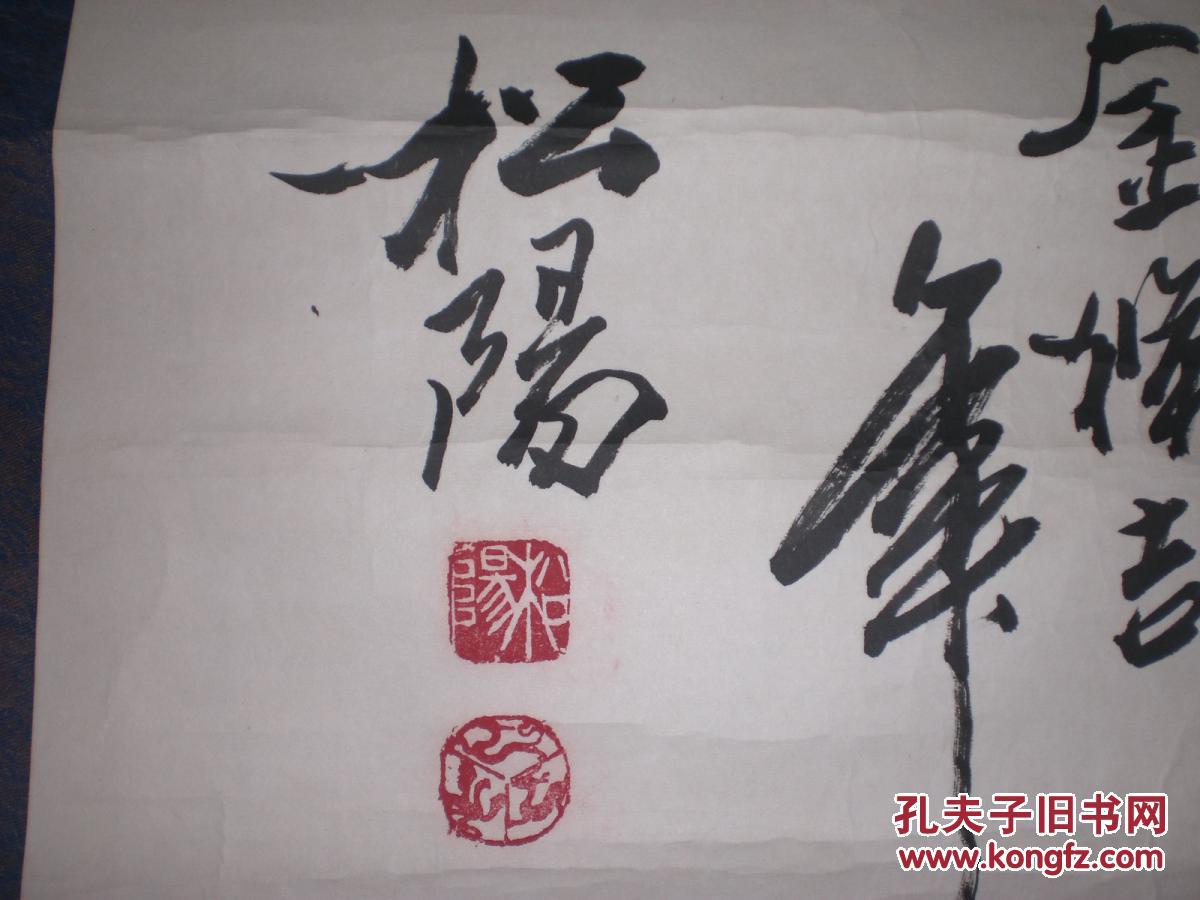 金辉吉
年
松陽
松陽
孔夫子旧书网
www.kongfz.com